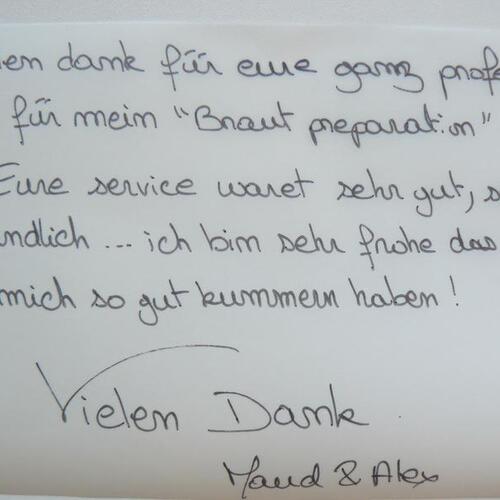 en dank für eine ganz profe
für mein "Braut preparation"
Eure service waret sehr gut, s
ndlich ... ich bin sehr frohe das
mich so gut kummern haben !
Vielen Dank
Maud & Alex